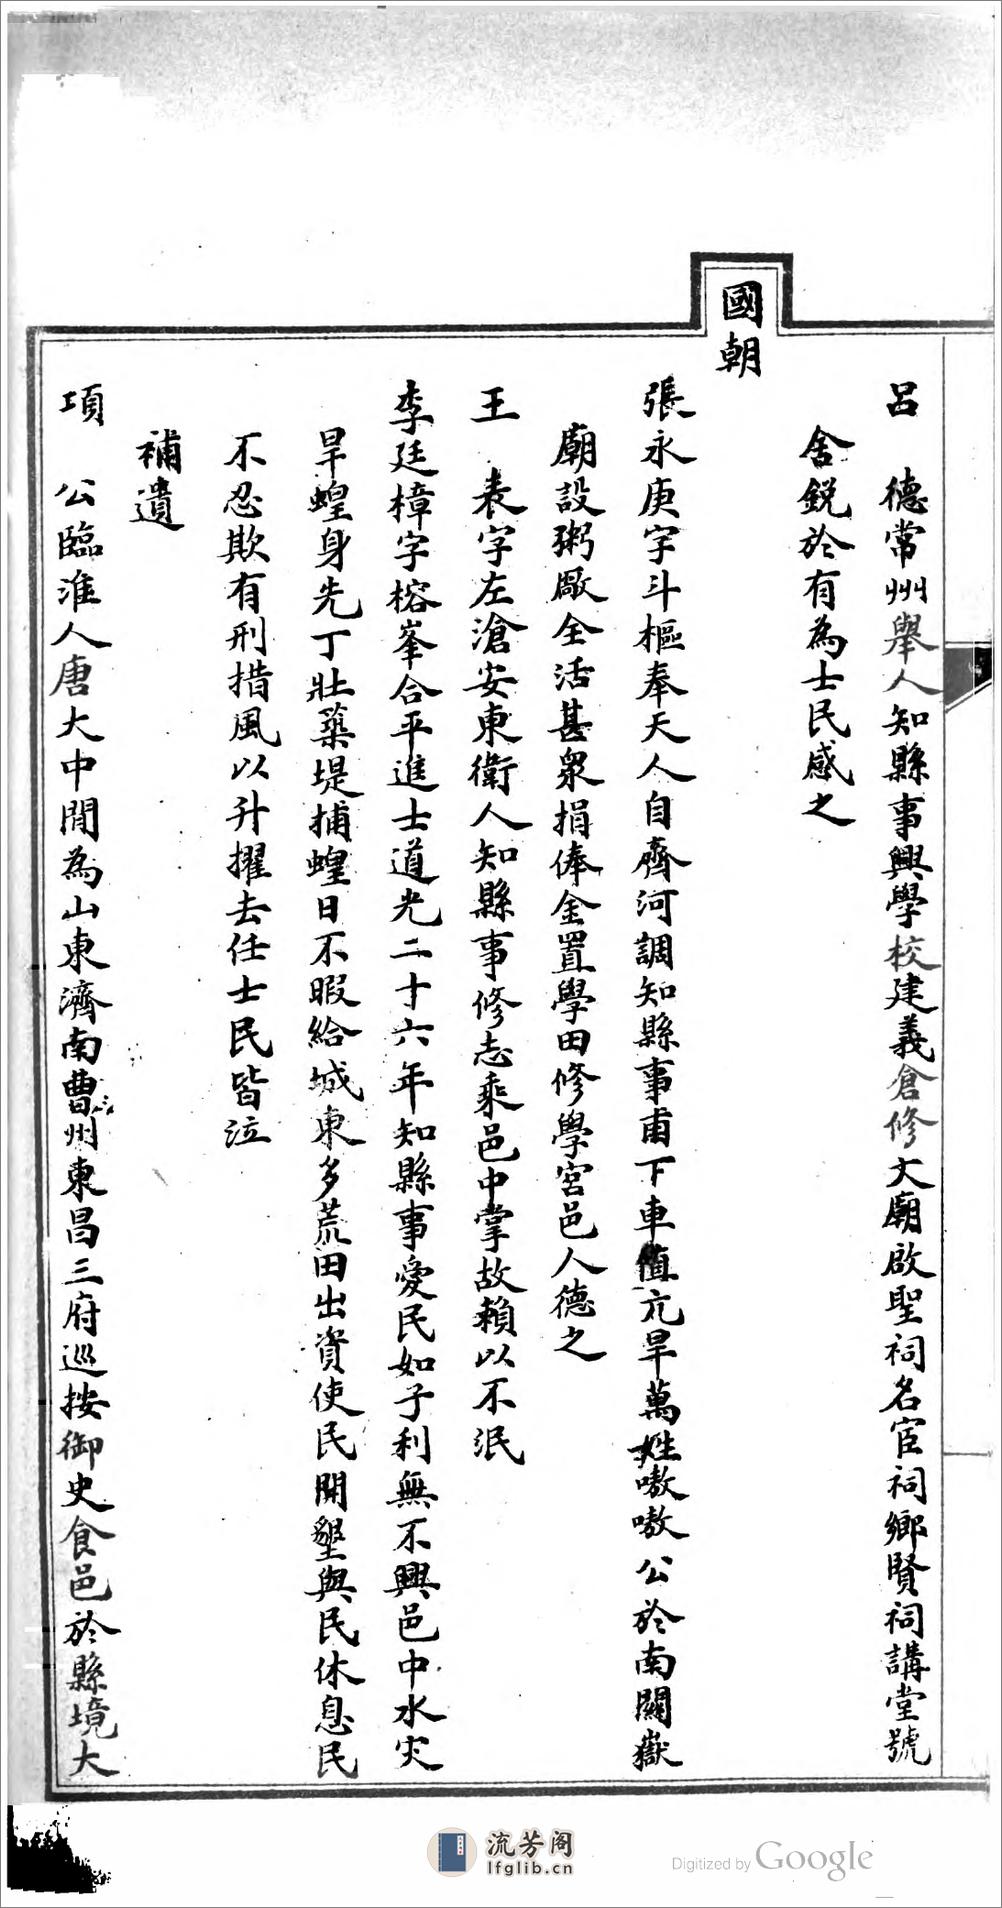 呂　德常州舉人知縣事興學校建義倉修文廟啟聖祠名宦祠鄉賢祠講堂號
舍銳於有為士民感之
國朝
張永庚字斗樞奉天人自齊河調知縣事甫下車值亢旱萬姓嗷嗷公於南關嶽
廟設粥厰全活甚眾捐俸金置學田修學宮邑人德之
王　表字左滄安東衛人知縣事修志乘邑中掌故賴以不泯
李廷樟字榕峯合平進士道光二十六年知縣事愛民如子利無不興邑中水灾
旱蝗身先丁壯築堤捕蝗日不暇給城東多荒田出資使民開墾與民休息民
不忍欺有刑措風以升擢去任士民皆泣
補遺
項　公臨淮人唐大中間為山東濟南曹州東昌三府巡按御史食邑於縣境大
流芳阁
lfglib.cn
Digitized by Google